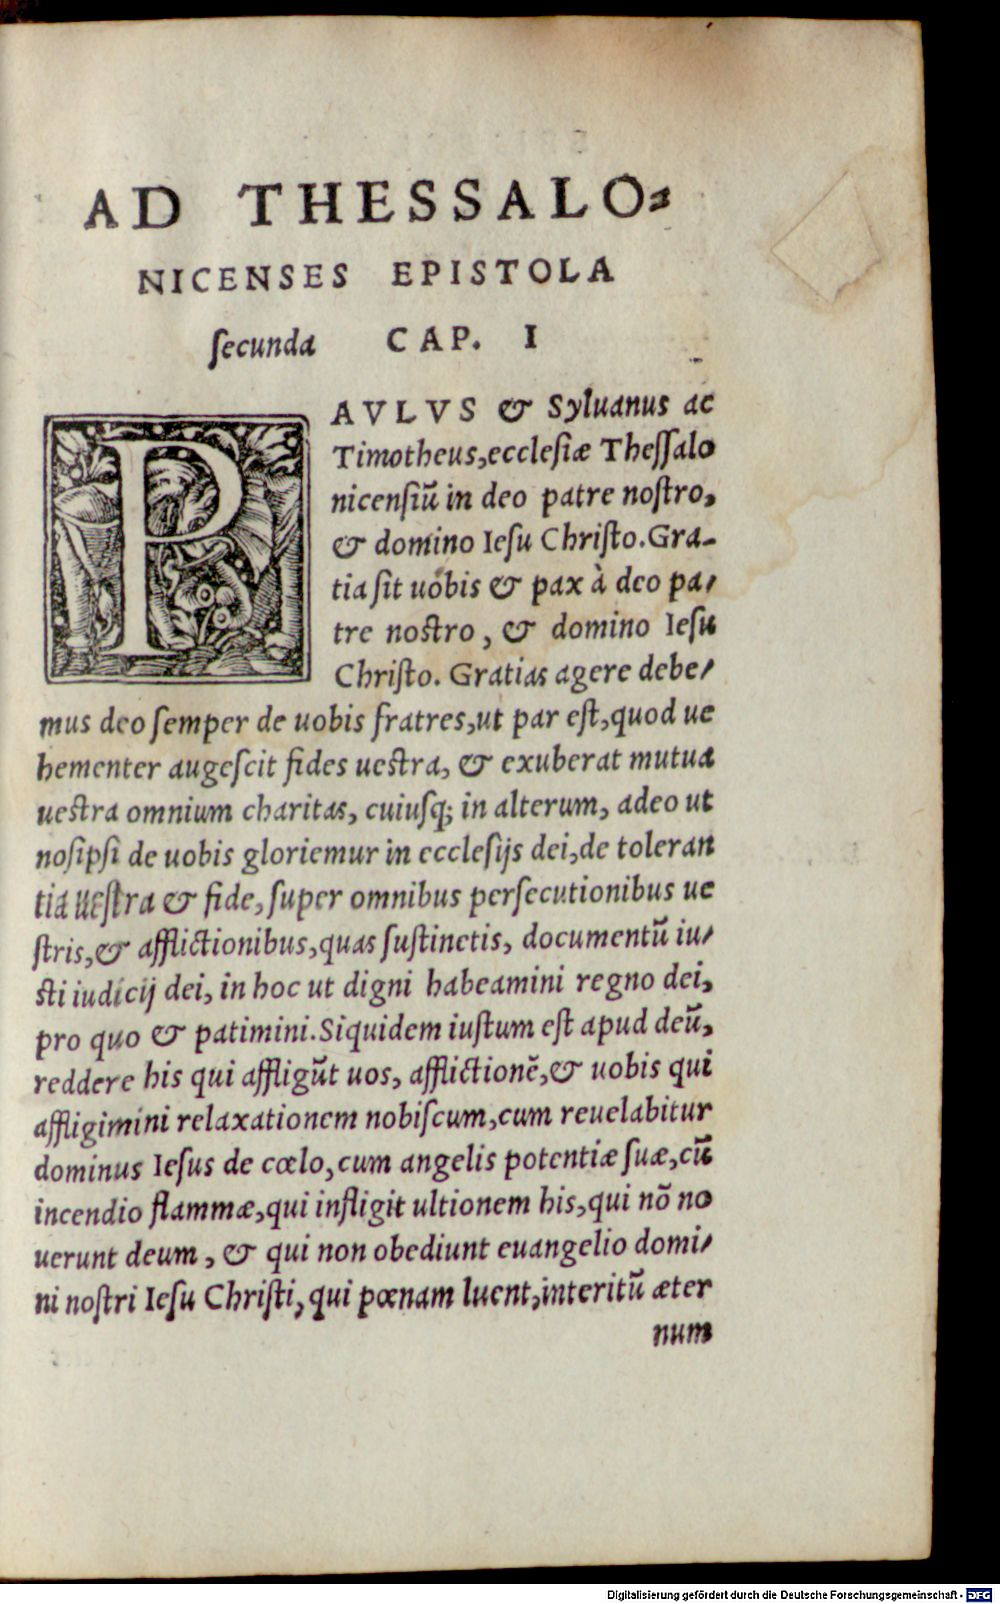 AD THESSALO⸗
NICENSES EPISTOLA
ſecunda CAP. I
PAVLVS & Syluanus ac
Timotheus,eccleſiæ Theſſalo
nicenſiū in deo patre noſtro,
& domino Ieſu Chriſto.Gra-
tia ſit uobis & pax à deo pa/
tre noſtro, & domino Ieſu
Chriſto. Gratias agere debe/
mus deo ſemper de uobis fratres,ut par eſt,quod ue
hementer augeſcit fides ueſtra, & exuberat mutua
ueſtra omnium charitas, cuiuſq; in alterum, adeo ut
noſipſi de uobis gloriemur in eccleſijs dei,de toleran
tia ueſtra & fide, ſuper omnibus perſecutionibus ue
ſtris,& afflictionibus,quas ſuſtinetis, documentū iu/
ſti iudicij dei, in hoc ut digni habeamini regno dei,
pro quo & patimini.Siquidem iuſtum eſt apud deū,
reddere his qui affligūt uos, afflictionē,& uobis qui
affligimini relaxationem nobiſcum,cum reuelabitur
dominus Ieſus de cœlo,cum angelis potentiæ ſuæ,cū
incendio flammæ,qui infligit ultionem his,qui nō no
uerunt deum, & qui non obediunt euangelio domi/
ni noſtri Ieſu Chriſti, qui pœnam luent,interitū æter
num
Digitalisierung gefördert durch die Deutsche Forschungsgemeinschaft - DFG